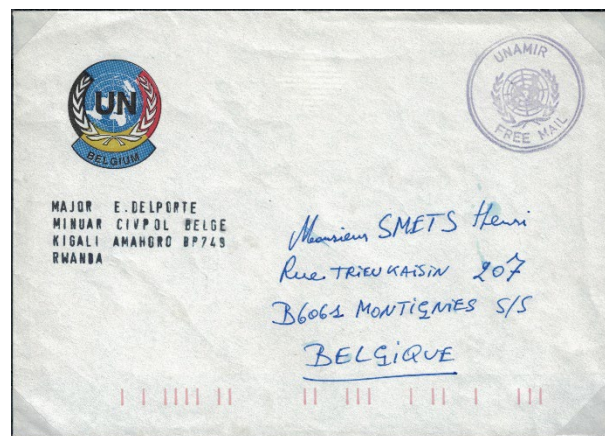 UN
BELGIUM
UNAMIR
FREE MAIL
MAJOR E.DELPORTE
MINUAR CIVPOL BELGE
KIGALI AMAHORO BP749
RWANDA
Monsieur SMETS Henri
Rue TRIEU KAISIN 207
B6061 MONTIGNIES S/S
BELGIQUE